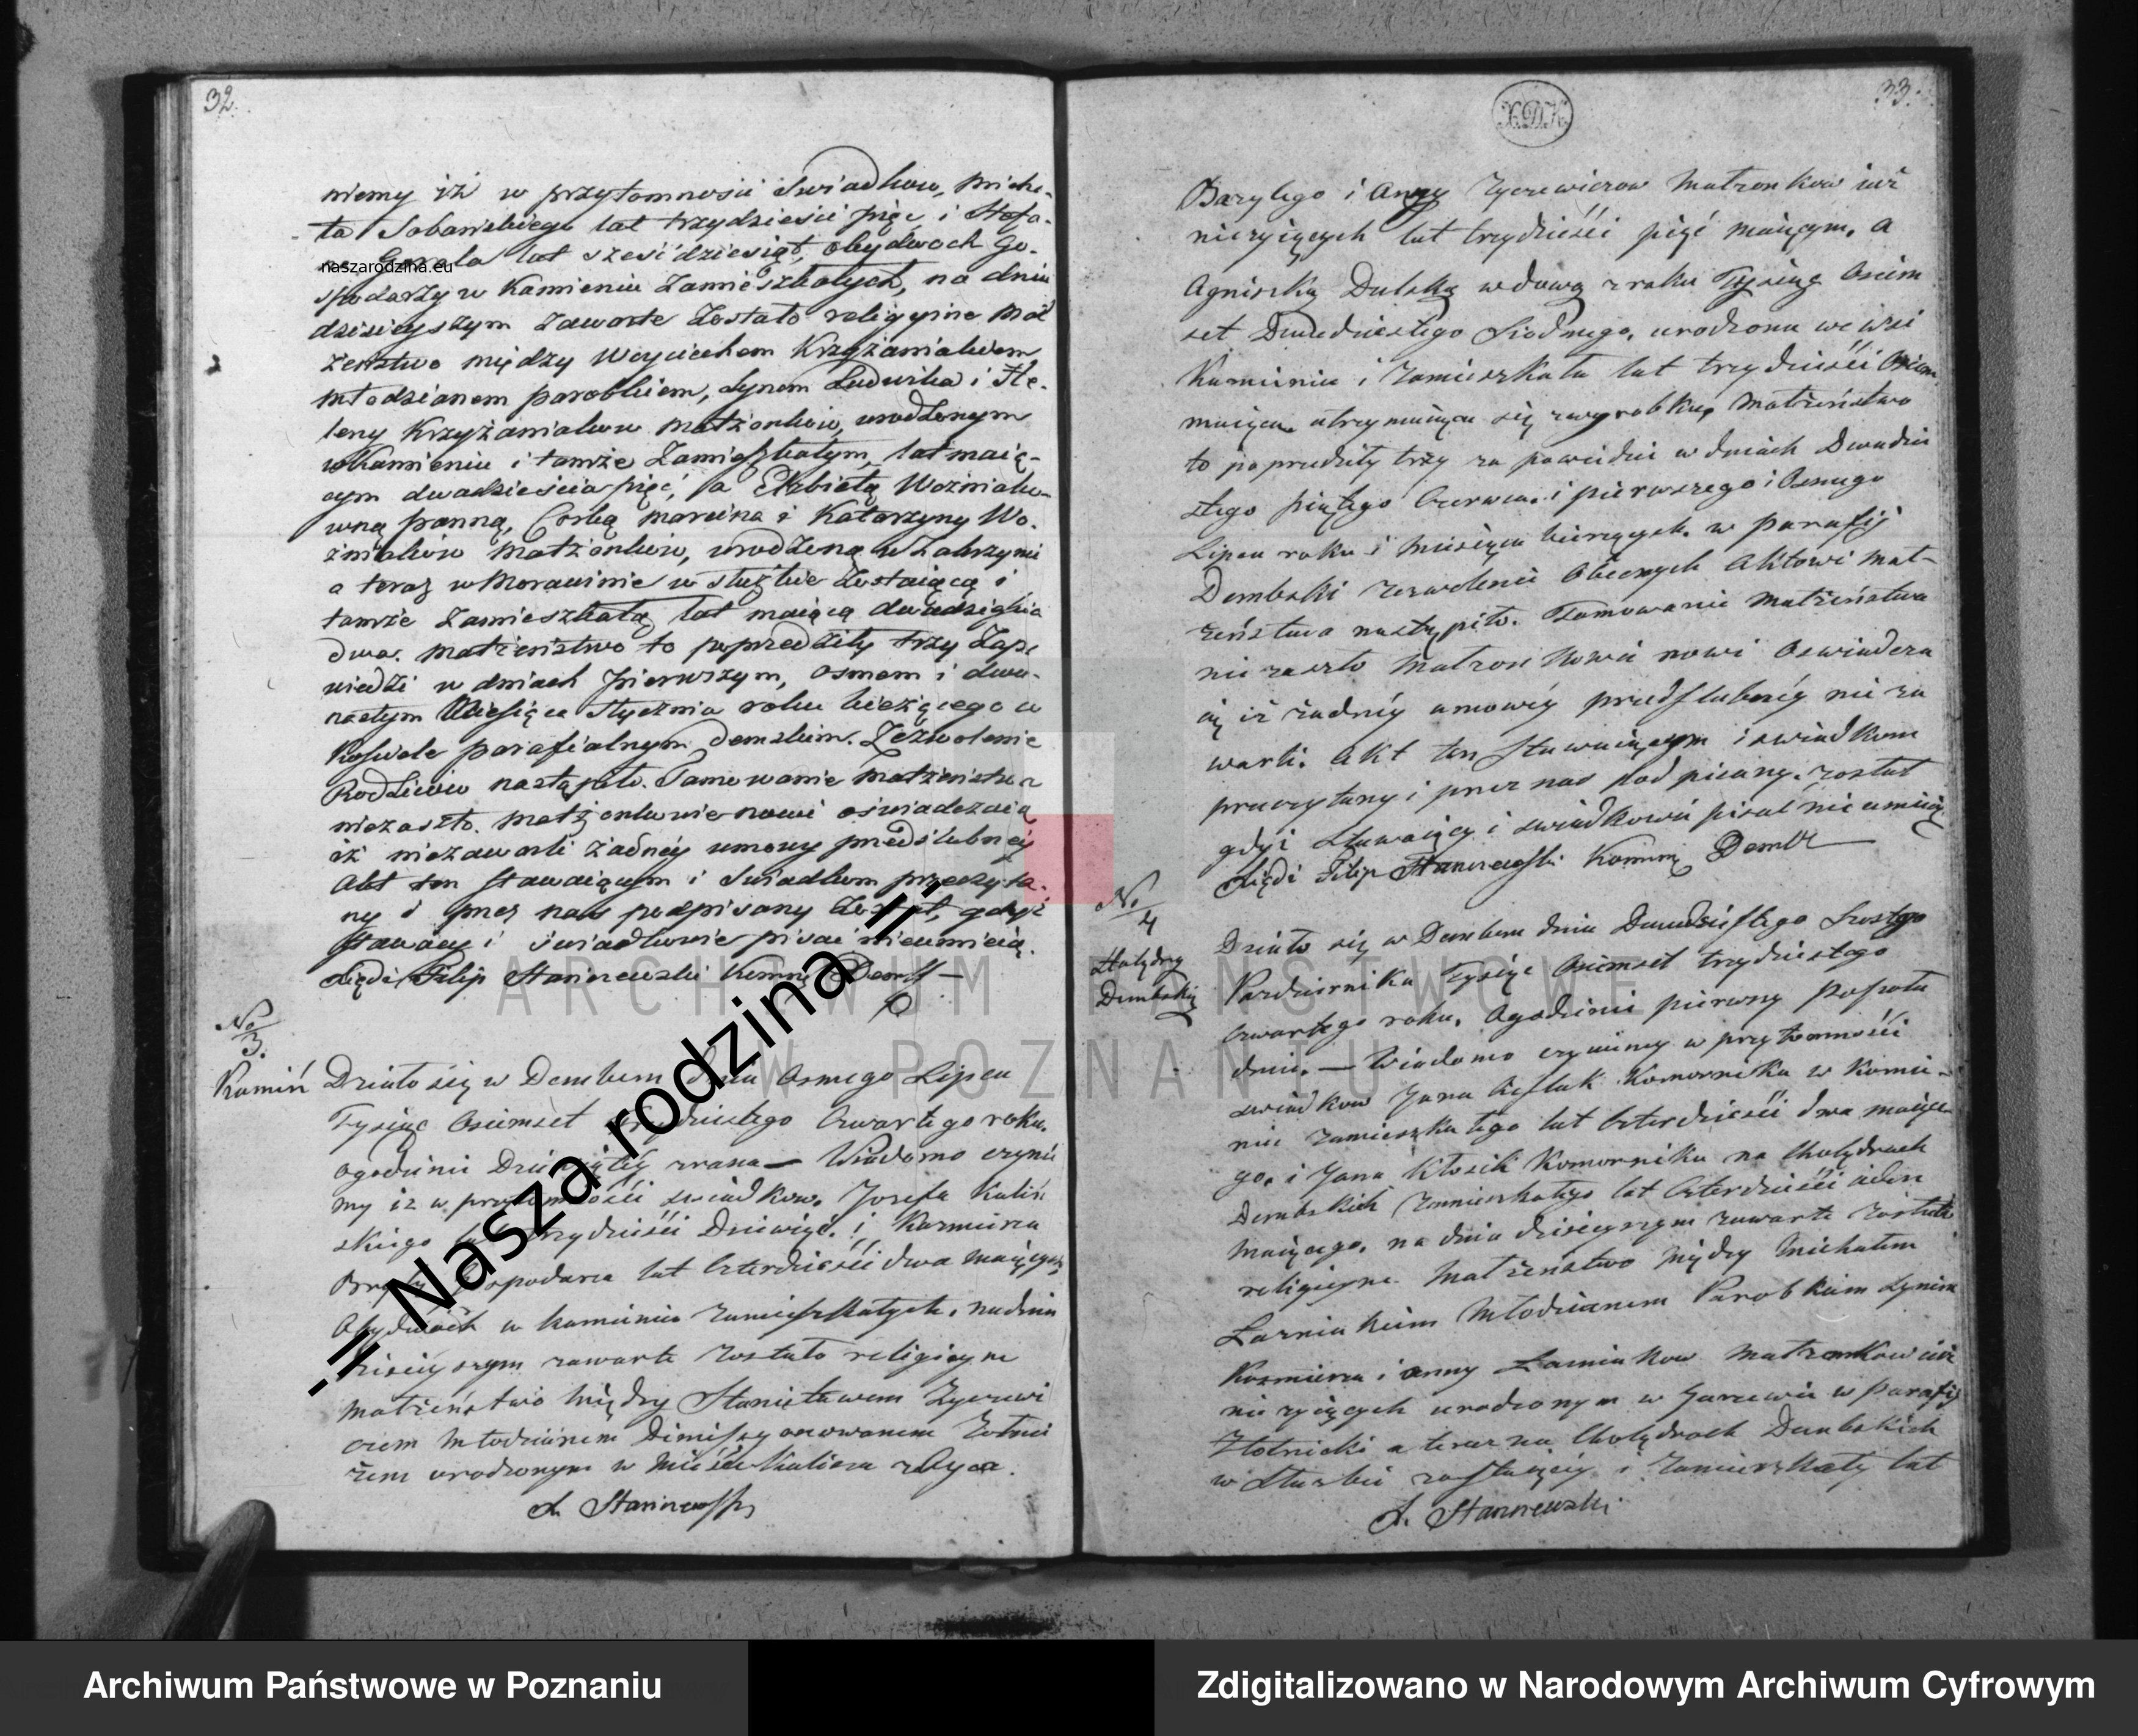 32.
niemy iż w przytomności Swiadków, Micha-
ła Sobańskiego lat trzydzieści pięć i Stefa-
na Gorala lat sześćdziesiąt, obydwoch Go-
naszarodzina.eu
spodarzy w Kamieniu Zamieszkałych, na dniu
dzisieyszym zawarte Zostało religiyine Mał
żeństwo między Woyciechem Krzyżaniakiem
młodzianem parobkiem, Synem Ludwika i He-
leny Krzyżaniaków Małżonków, urodzonym
w Kamieniu i tamże Zamieszkałym, lat maią-
cym dwadzieścia pięć, a Elżbietą Woźniako-
wną panną, Corką Marcina i Katarzyny Wo-
źniaków Małżonków, urodzoną w Zakrzynie
a teraz w Morawinie w służbie Zostaiącą i
tamże Zamieszkałą lat maiącą dwadzieścia
dwa. Małżeństwo to poprzedziły trzy Zapo
wiedzi w dniach pierwszym, osmem i dwu-
nastym Miesiąca Stycznia roku bieżącego w
Kościele parafialnym Dembskim. Zezwolenie
Rodziców nastąpiło. Tamowanie Małżeństwa
niezaszło. Małżonkowie nowi oświadczaią
iż niezawarli żadnéy umowy przedślubnéy
Akt ten stawaiącym i Swiadkom przeczyta-
ny i przez nas podpisany Został, gdyż
Stawaiący i swiadkowie pisać nieumieią.
Xiądz Filip Staniszewski Komend. Demb
No
3.
Kamiń
Działo się w Dembem dnia Osmego Lipca
Tysiąc Osimset trzydziestego Czwartego roku.
ogodzinie Dziewiątéy zrana — Wiadomo czynie
my iż w przytomności swiadkow. Josefa Kaliń
skiego lat trzydzieści Dziewięć. i Kazmierza
Gospodarza lat Czterdzieści dwa maiącego
Obydwoch w kamieniu zamieszkałych. nadniu
dzisieyszym zawarte zostało religiyne
małżeństwo między Stanisławem Zycrewi
czem młodzianem Dimissyonowanem Zołnie
rzem urodzonym w Mieście Kaliszu zOyca.
X. Staniszewski
- II Nasza rodzina II -
33.
X.D.K.
Bazylego i Anny Zycrewiczow Matzonkow iuż
nieżyiących lat trzydzieści pięć maiącym. A
Agniszką Dulską wdową z roku Tysiąc Osiem
set Dwudziestego Siodmego, urodzona we wsi
Kamieniu i zamieszkała lat trzydzieści Osiem
maiąca utrzymuiąca się zwyrobku, Małżeństwo
to poprzedziły trzy za powiedzi w dniach Dwudzie
stego piątego Czerwca. i pierwszego i Osmego
Lipca roku i Miesiąca bieżących. w parafij
Dembski Zezwolenie Obecnych Aktowi Mał-
żeństwa nastąpiło. Tamowanie Małżeństwa
nie zaszło Małzonkowie nowi Oswiadcza
ią iż żadnéy umowéy przedslubnéy nie za
warli. Akt ten Stawaiącym i swiadkom
przeczytany i przez nas pod pisany. został
gdyż Stawaiący i swiadkowie pisać nie umieią
Xiądz Filip Staniszewski Komend Demb
No
4
Holędry
Dembskie
Działo się w Dembem dnia Dwudziestego Szostego
Pazdziernika Tysiąc Osiemset trzydziestego
Czwartego roku. Ogodzinie pierwszy popołu
dniu. — Wiadomo czyniemy w przytomności
swiadkow Jana Komornika w Kamie-
niu zamieszkałego lat Czterdzieści dwa maiące
go. i Jana Kłosik Komornika na Cholędrach
Dembskich zamieszkałego lat Czterdzieści ieden
maiącego. na dniu dzisieyszym zawarte zostało
religiyne Małżeństwo między Michałem
Łazniakiem Młodzianem Parobkiem Synem
Kazmierza i Anny Łazniakow Małzonkow iuż
nie zyiących urodzonym w Jarcewie w parafij
Złotnicki a teraz na Cholędrach Dembskich
w Służbie zostaiący i zamieszkały lat
X. Staniszewski
ARCHIWUM PAŃSTWOWE
W POZNANIU
Archiwum Państwowe w Poznaniu
Zdigitalizowano w Narodowym Archiwum Cyfrowym